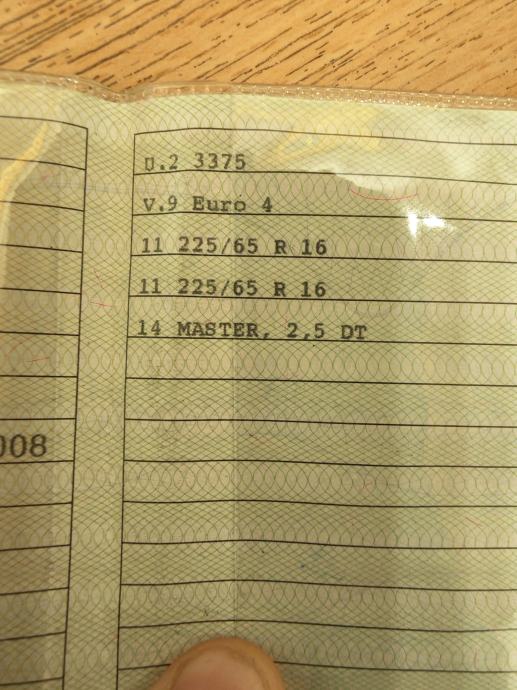 U.2 3375
V.9 Euro 4
11 225/65 R 16
11 225/65 R 16
14 MASTER, 2,5 DT
008